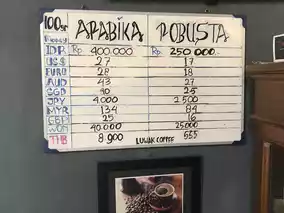 100gr ARABIKA ROBUSTA
MONEY
IDR Rp. 400.000 Rp 250 000.-
US$ 27 17
EURO 28 18
AUD 43 27
SGD 40 25
JPY 4000 2500
MYR 134 84
GBP 25 16
WON 40.000 25000
THB 8 900 LUWAK COFFEE 555